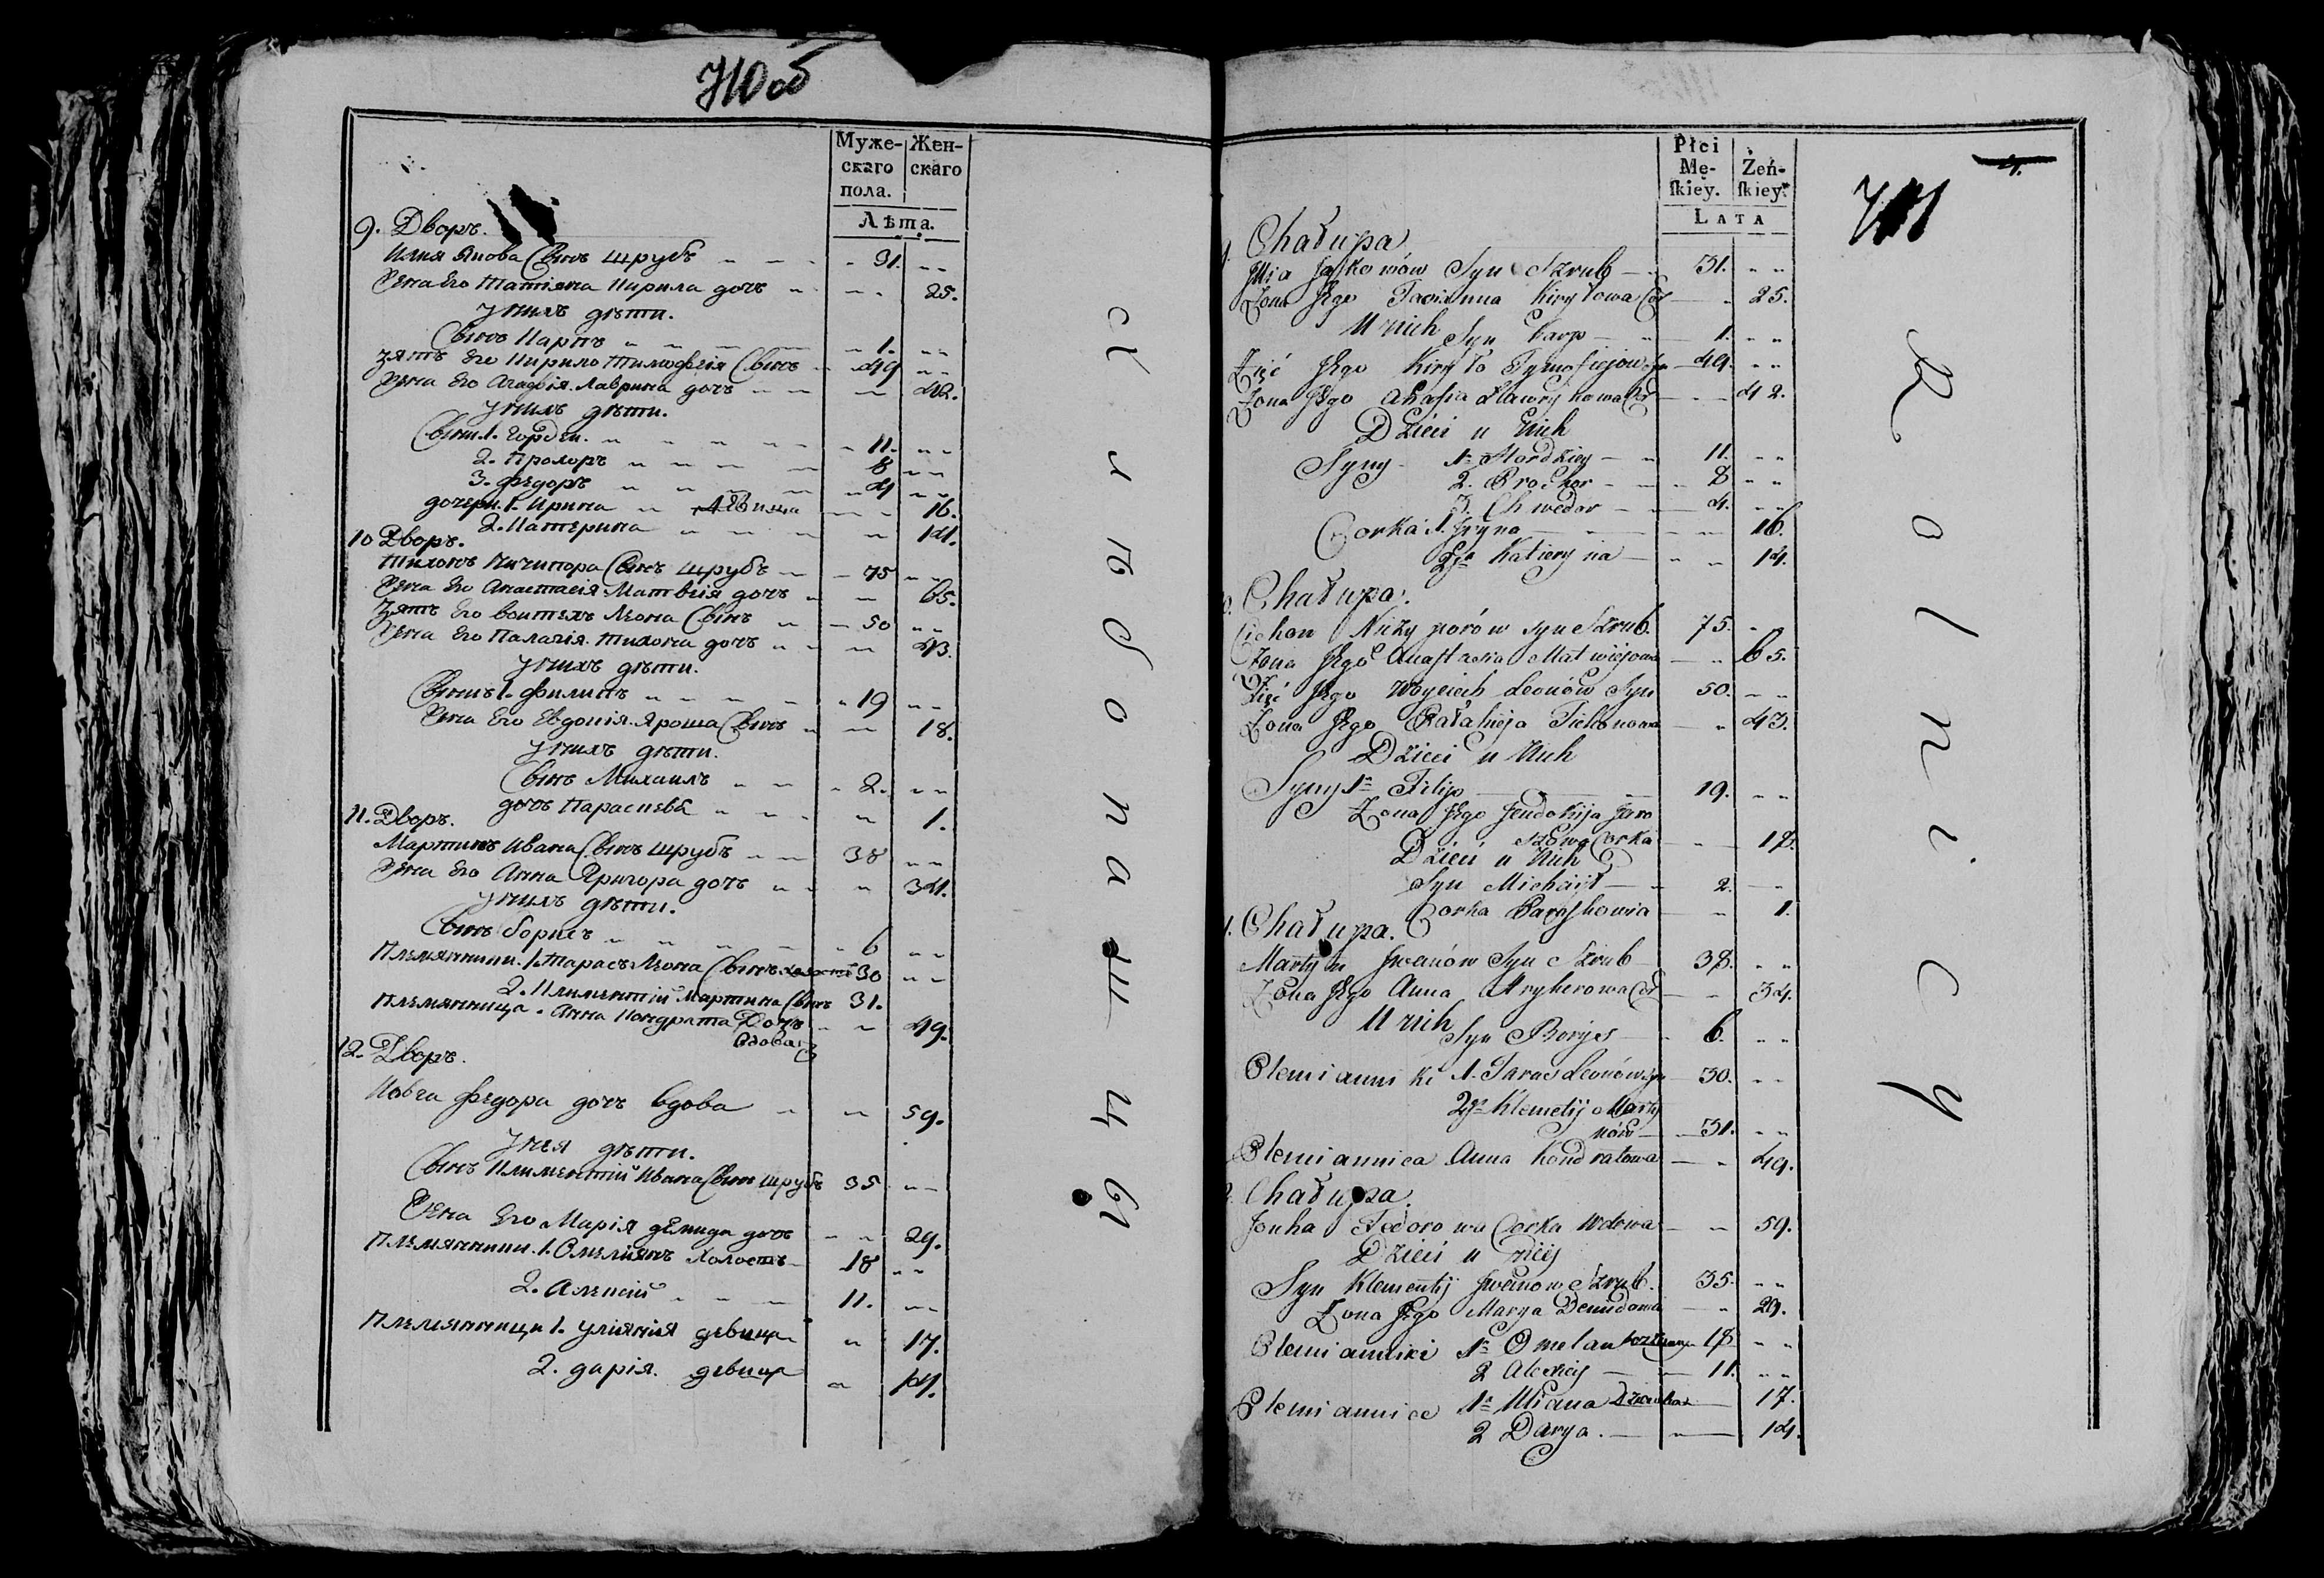 710 об
Муже-
скаго
пола.
Жен-
скаго
Лѣта.
9. Дворъ.
Илия Янова Сынъ Шрубъ 31.
Жена Его Татіяна Кирила дочь 25.
У нихъ дѣти.
Сынъ Карпъ 1.
Зять Его Кирило Тимофѣя Сынъ 49
Жена Его Агафія Лаврина дочь 42.
У нихъ дѣти.
Сыни. 1. Гордѣи. 11.
2. Прохоръ 8
3. Федоръ 4
дочери. 1. Ирина дѣвица 16.
2. Катерина 14.
10 Дворъ.
Тихонъ Ничипора Сынъ Шрубъ 75
Жена Его Анастасія Матвѣія дочь 65.
Зять Его Воитехъ Леона Сынъ 50
Жена Его Палагія Тихона дочь 43.
У нихъ дѣти.
Сынъ 1. Филипъ 19
Жена Его Евдокія Яроша Сынъ 18.
У нихъ дѣти.
Сынъ Михаилъ 2.
дочь Параскева 1.
11. Дворъ.
Мартинъ Ивана Сынъ Шрубъ 38
Жена Его Анна Григора дочь 34.
У нихъ дѣти.
Сынъ Борисъ 6
Племянники. 1. Тарасъ Леона Сынъ холостъ 30
2. Климентій Мартина Сынъ 31.
Племянница. Анна Кондрата Дочь 49.
Вдова
12. Дворъ.
Ховга Федора дочь вдова 59.
У нея дѣти.
Сынъ Климентій Ивана Сынъ Шрубъ 35
Жена Его Марія Демида дочь 29.
Племянники. 1. Омелиянъ Холостъ 18
2. Алексій 11.
Племянници 1. Улиянія дѣвица 17.
2. Дарія. дѣвица 14.
хлѣбопашцы
Płci
Mę-
skiey.
Żeń-
skiey.
LATA
4.
711
Chałupa
Jlia Jaſkowów Syn Szrub 31.
Żona Jego Tacianna Kiryłowa Cór 25.
U nich Syn Karp 1.
Zięć Jego Kiryło Tymofiejow Syn 49.
Żona Jego Ahafia Ławrynowa Cór 42.
Dzieci u Nich
Syny 1n Hordziey 11.
2. Prochor 8
3. Chwedor 4.
Corka 1. Jryna 16.
2ga Kateryna 14.
Chałupa.
Cichon Niczyporów syn Szrub. 75.
Żona Jego Anaſtasia Matwiejowa 65.
Zięć Jego Woyciech Leonów Syn 50.
Żona Jego Pałahieja Tichonowa 43.
Dzieci u Nich
Syny 1n Filip 19.
Żona Jego Jeudokija Jaro
szowa Corka 18.
Dzieci u Nich
Syn Michaił 2.
Corka Paraſkowia 1.
Chałupa.
Martyn Jwanów Syn Szrub 38.
Żona Jego Anna Hryherowa Cór 34.
U nich Syn Boryes 6.
Plemianniki 1. Taras Leonów syn 30.
2gi Klemetij Marty
nów 31.
Plemiannica Anna Kondratowa 49.
Chałupa.
Jouha Fedorowa Corka Wdowa 59.
Dzieci u Niéj
Syn Klementij Jwanow Szrub. 35.
Żona Jego Marya Demidowa 29.
Plemianniki 1n Omelan 18
2 Alexiey 11.
Plemiannice 1a Uliana 17.
2 Darya. 14.
Rolnicy